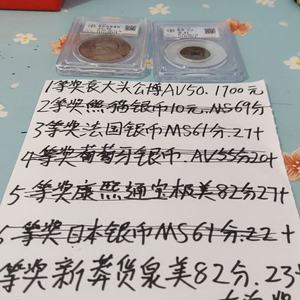 1等奖袁大头公博AV50.1700元
2等奖熊猫银币10元.MS69分
3等奖法国银币MS61分.27+
4等奖葡萄牙银币.AV55分20+
5等奖康熙通宝极美82分27+
6等奖日本银币MS61分.22+
等奖新莽货泉美82分.23